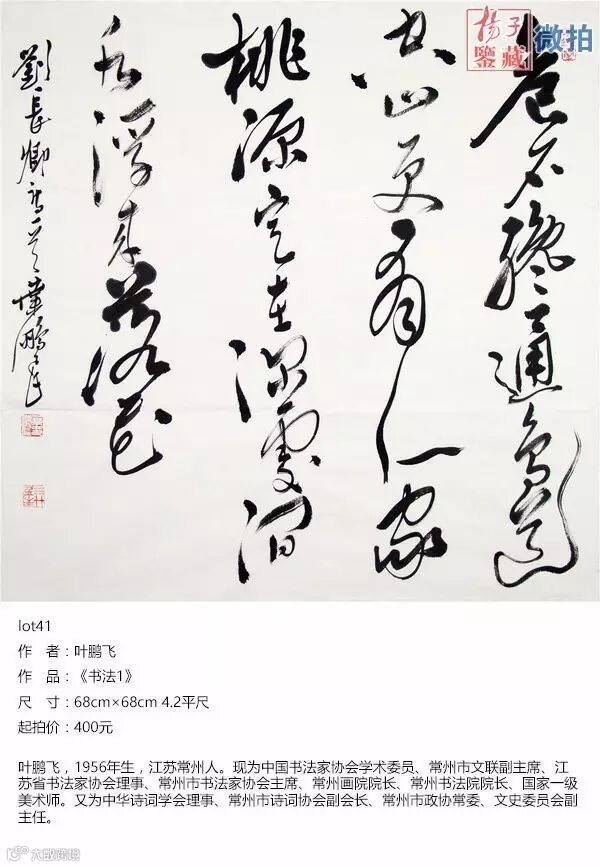 揚子
鑒藏
微拍
危石纔通鳥道
空山更有人家
桃源定在深處澗
水浮來落花
劉長卿詩一首 葉鵬飛
lot41
作 者：叶鹏飞
作 品：《书法1》
尺 寸：68cm×68cm 4.2平尺
起拍价：400元
叶鹏飞，1956年生，江苏常州人。现为中国书法家协会学术委员、常州市文联副主席、江
苏省书法家协会理事、常州市书法家协会主席、常州画院院长、常州书法院院长、国家一级
美术师。又为中华诗词学会理事、常州市诗词协会副会长、常州市政协常委、文史委员会副
主任。
大数跨境